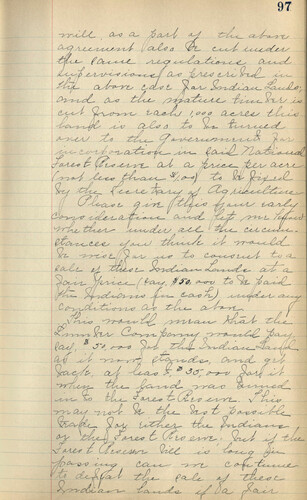 97
will, as a part of the above
agreement also be cut under
the same regulations and
supervisions as prescribed in
the above case for Indian Lands;
and as the mature timber is
cut from each 1,000 acres this
land is also to be turned
over to the Government for
incorporation in said National
Forest Reserve at a price per acre
(not less than $1.00) to be fixed
by the Secretary of Agriculture.
Please give this your early
consideration and let me know
whether under all the circum-
stances you think it would
be wise for us to consent to a
sale of these Indian Lands at a
fair price (say, $50,000 to be paid
the Indians in cash) under any
conditions as the above.
This would mean that the
Lumber Company would pay
say $50,000 for the Indian Land
as it now stands, and get
back at least $35,000 for it
when the land was turned
in to the Forest Reserve. This
may not be the best possible
trade for either the Indians
or the Forest Reserve. but if the
Forest Reserve bill is long in
passing can we continue
to defeat the sale of these
Indian lands if a fair